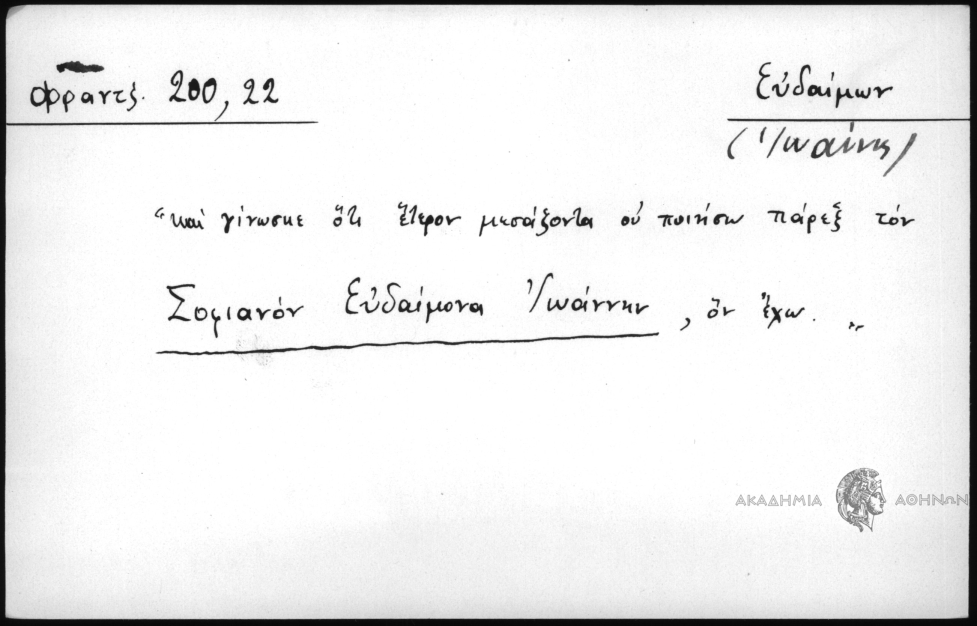 Φραντζ. 200, 22
Εὐδαίμων
(Ἰωάννης)
“καί γίνωσκε ὅτι ἕτερον μεσάζοντα οὐ ποιήσω πάρεξ τόν
Σοφιανόν Εὐδαίμονα Ἰωάννην, ὅν ἔχω. „
ΑΚΑΔΗΜΙΑ ΑΘΗΝΩΝ